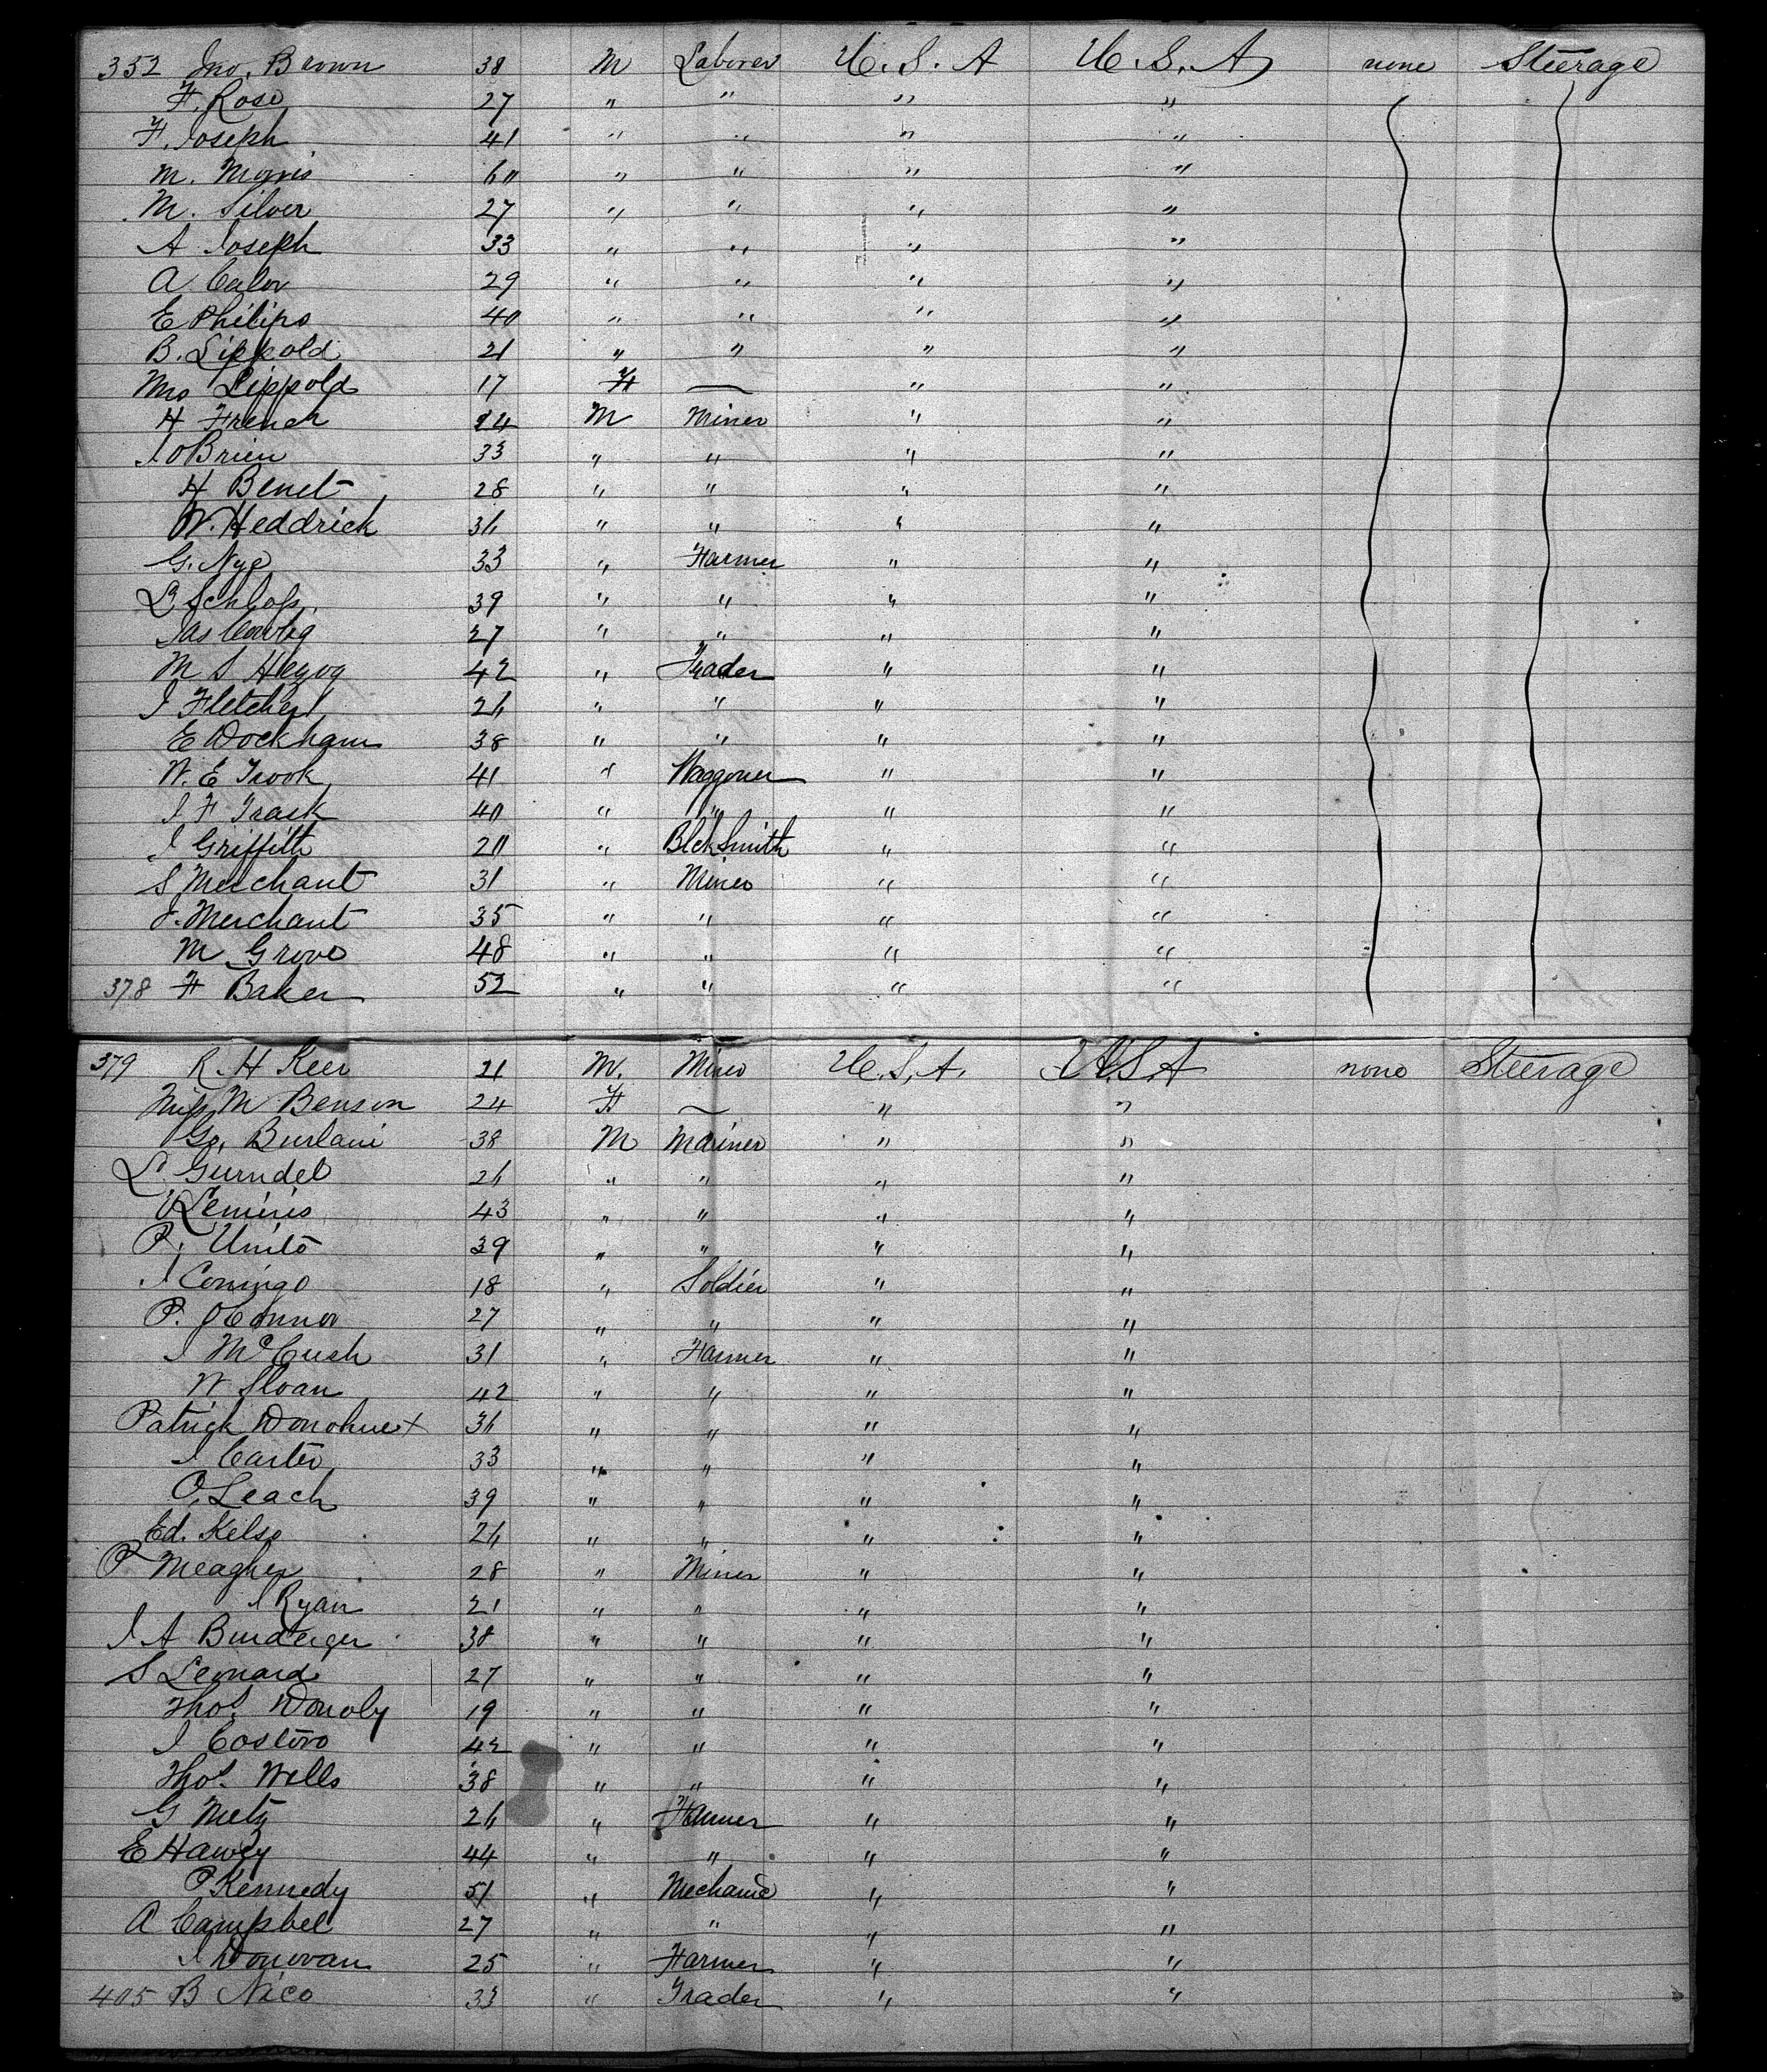 352 Jno. Brown 38 M Laborer U.S.A U.S.A none Steerage
F. Rose 27 " " " "
F. Joseph 41 " " " "
M. Morris 60 " " " "
M. Silver 27 " " " "
A Joseph 33 " " " "
A 29 " " " "
E Philips 40 " " " "
B. Lippold 21 " " " "
Mrs Lippold 17 F — " "
H French 24 M Miner " "
J OBrien 33 " " " "
H Benet 28 " " " "
W. Heddrick 36 " " " "
G. Nye 33 " Farmer " "
L Schloss 39 " " " "
Jas 27 " " " "
M S Herzog 42 " Trader " "
J Fletcher 26 " " " "
E Dockham 38 " " " "
W. E Trook 41 " Waggoner " "
J F Trask 40 " " " "
J Griffith 20 " BlckSmith " "
S Merchant 31 " Miner " "
J. Merchant 35 " " " "
M Grove 48 " " " "
378 F Baker 52 " " " "
379 R. H Keer 21 M. Miner U.S.A. U.S.A none Steerage
Miss M Benson 24 F — " "
Go. Burlani 38 M Mariner " "
L. Gurndel 26 " " " "
43 " " " "
P. Unito 39 " " " "
J Comingo 18 " Soldier " "
P. OConnor 27 " " " "
J McCush 31 " Farmer " "
W Sloan 42 " " " "
Patrick Donohue + 36 " " " "
J Carter 33 " " " "
O. Leach 39 " " " "
Ed. Kelso 26 " " " "
P Meagher 28 " Miner " "
J Ryan 21 " " " "
J A Burderger 38 " " " "
S Leonard 27 " " " "
Thos. Donoly 19 " " " "
J Costoro 42 " " " "
Thos. Wells 38 " " " "
G Metz 26 " Farmer " "
E Hawey 44 " " " "
P Kennedy 51 " Mechanic " "
A Campbel 27 " " " "
J Donovan 25 " Farmer " "
405 B Nico 33 " Trader " "